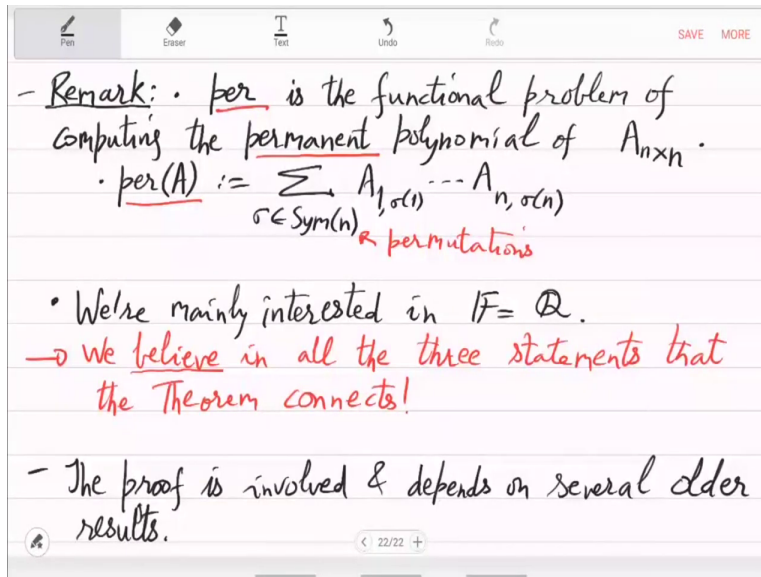 Pen Eraser Text Undo Redo SAVE MORE
- Remark: · per is the functional problem of
computing the permanent polynomial of A_{n×n} .
· per(A) := ∑_{σ∈Sym(n)} A_{1,σ(1)} --- A_{n,σ(n)}
↖ permutations
· We're mainly interested in 𝔽 = ℚ.
→ We believe in all the three statements that
the Theorem connects!
- The proof is involved & depends on several older
results.
< 22/22 +